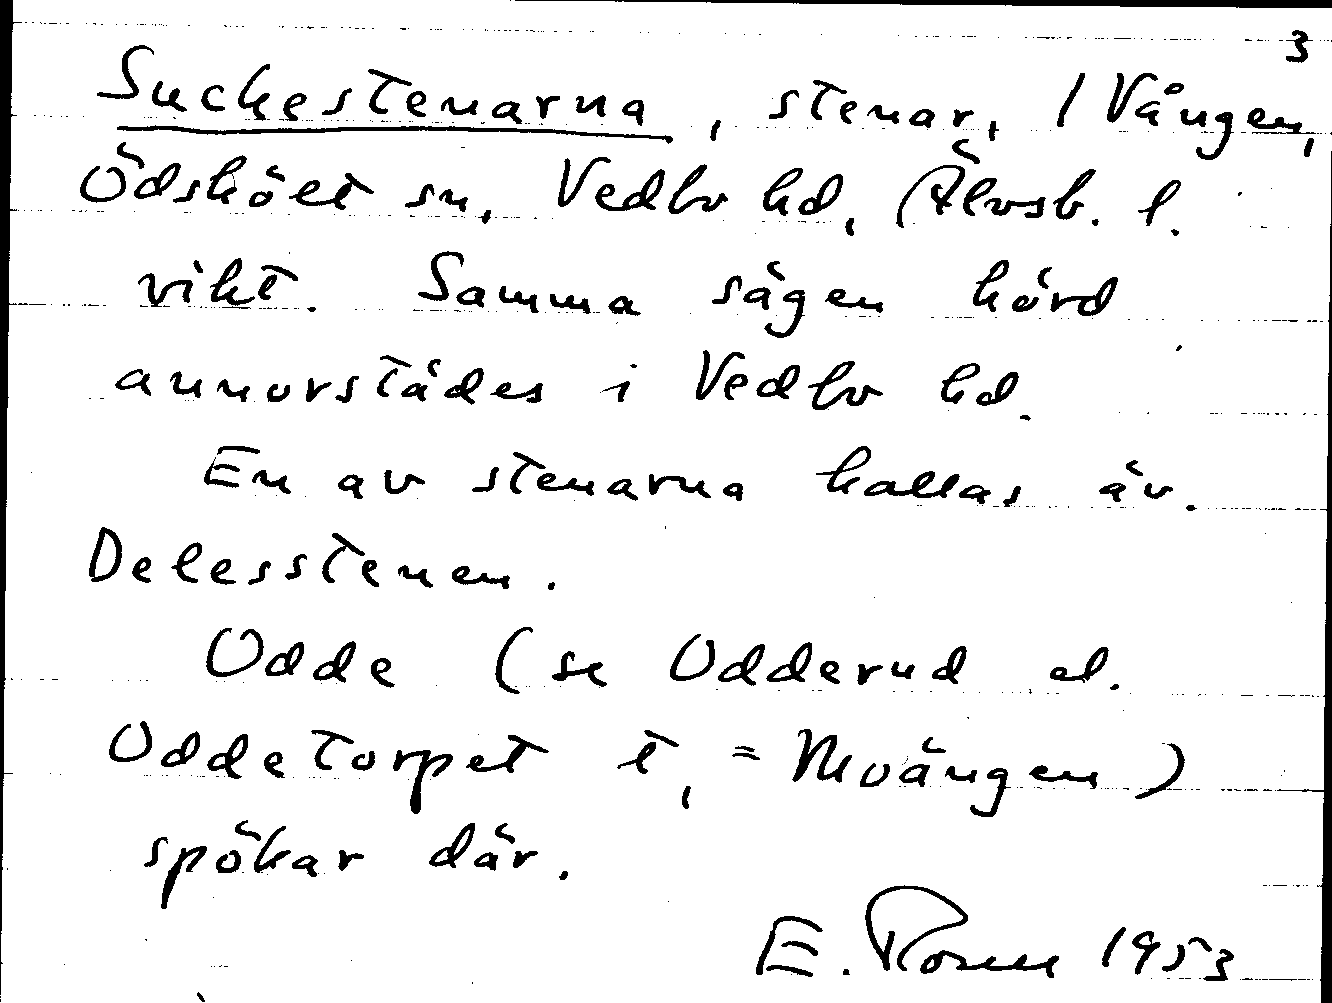 3
Suckestenarna, stenar, 1 Vången,
ÖdsköLt sn, Vedbo hd, Älvsb. l.
vikt. Samma sägen hörd
annorstädes i Vedbo hd.
En av stenarna kallas äv.
Delesstenen.
Udde (se Udderud el.
Uddetorpet t, = Nuvängen)
spökar där.
E. Rosen 1953